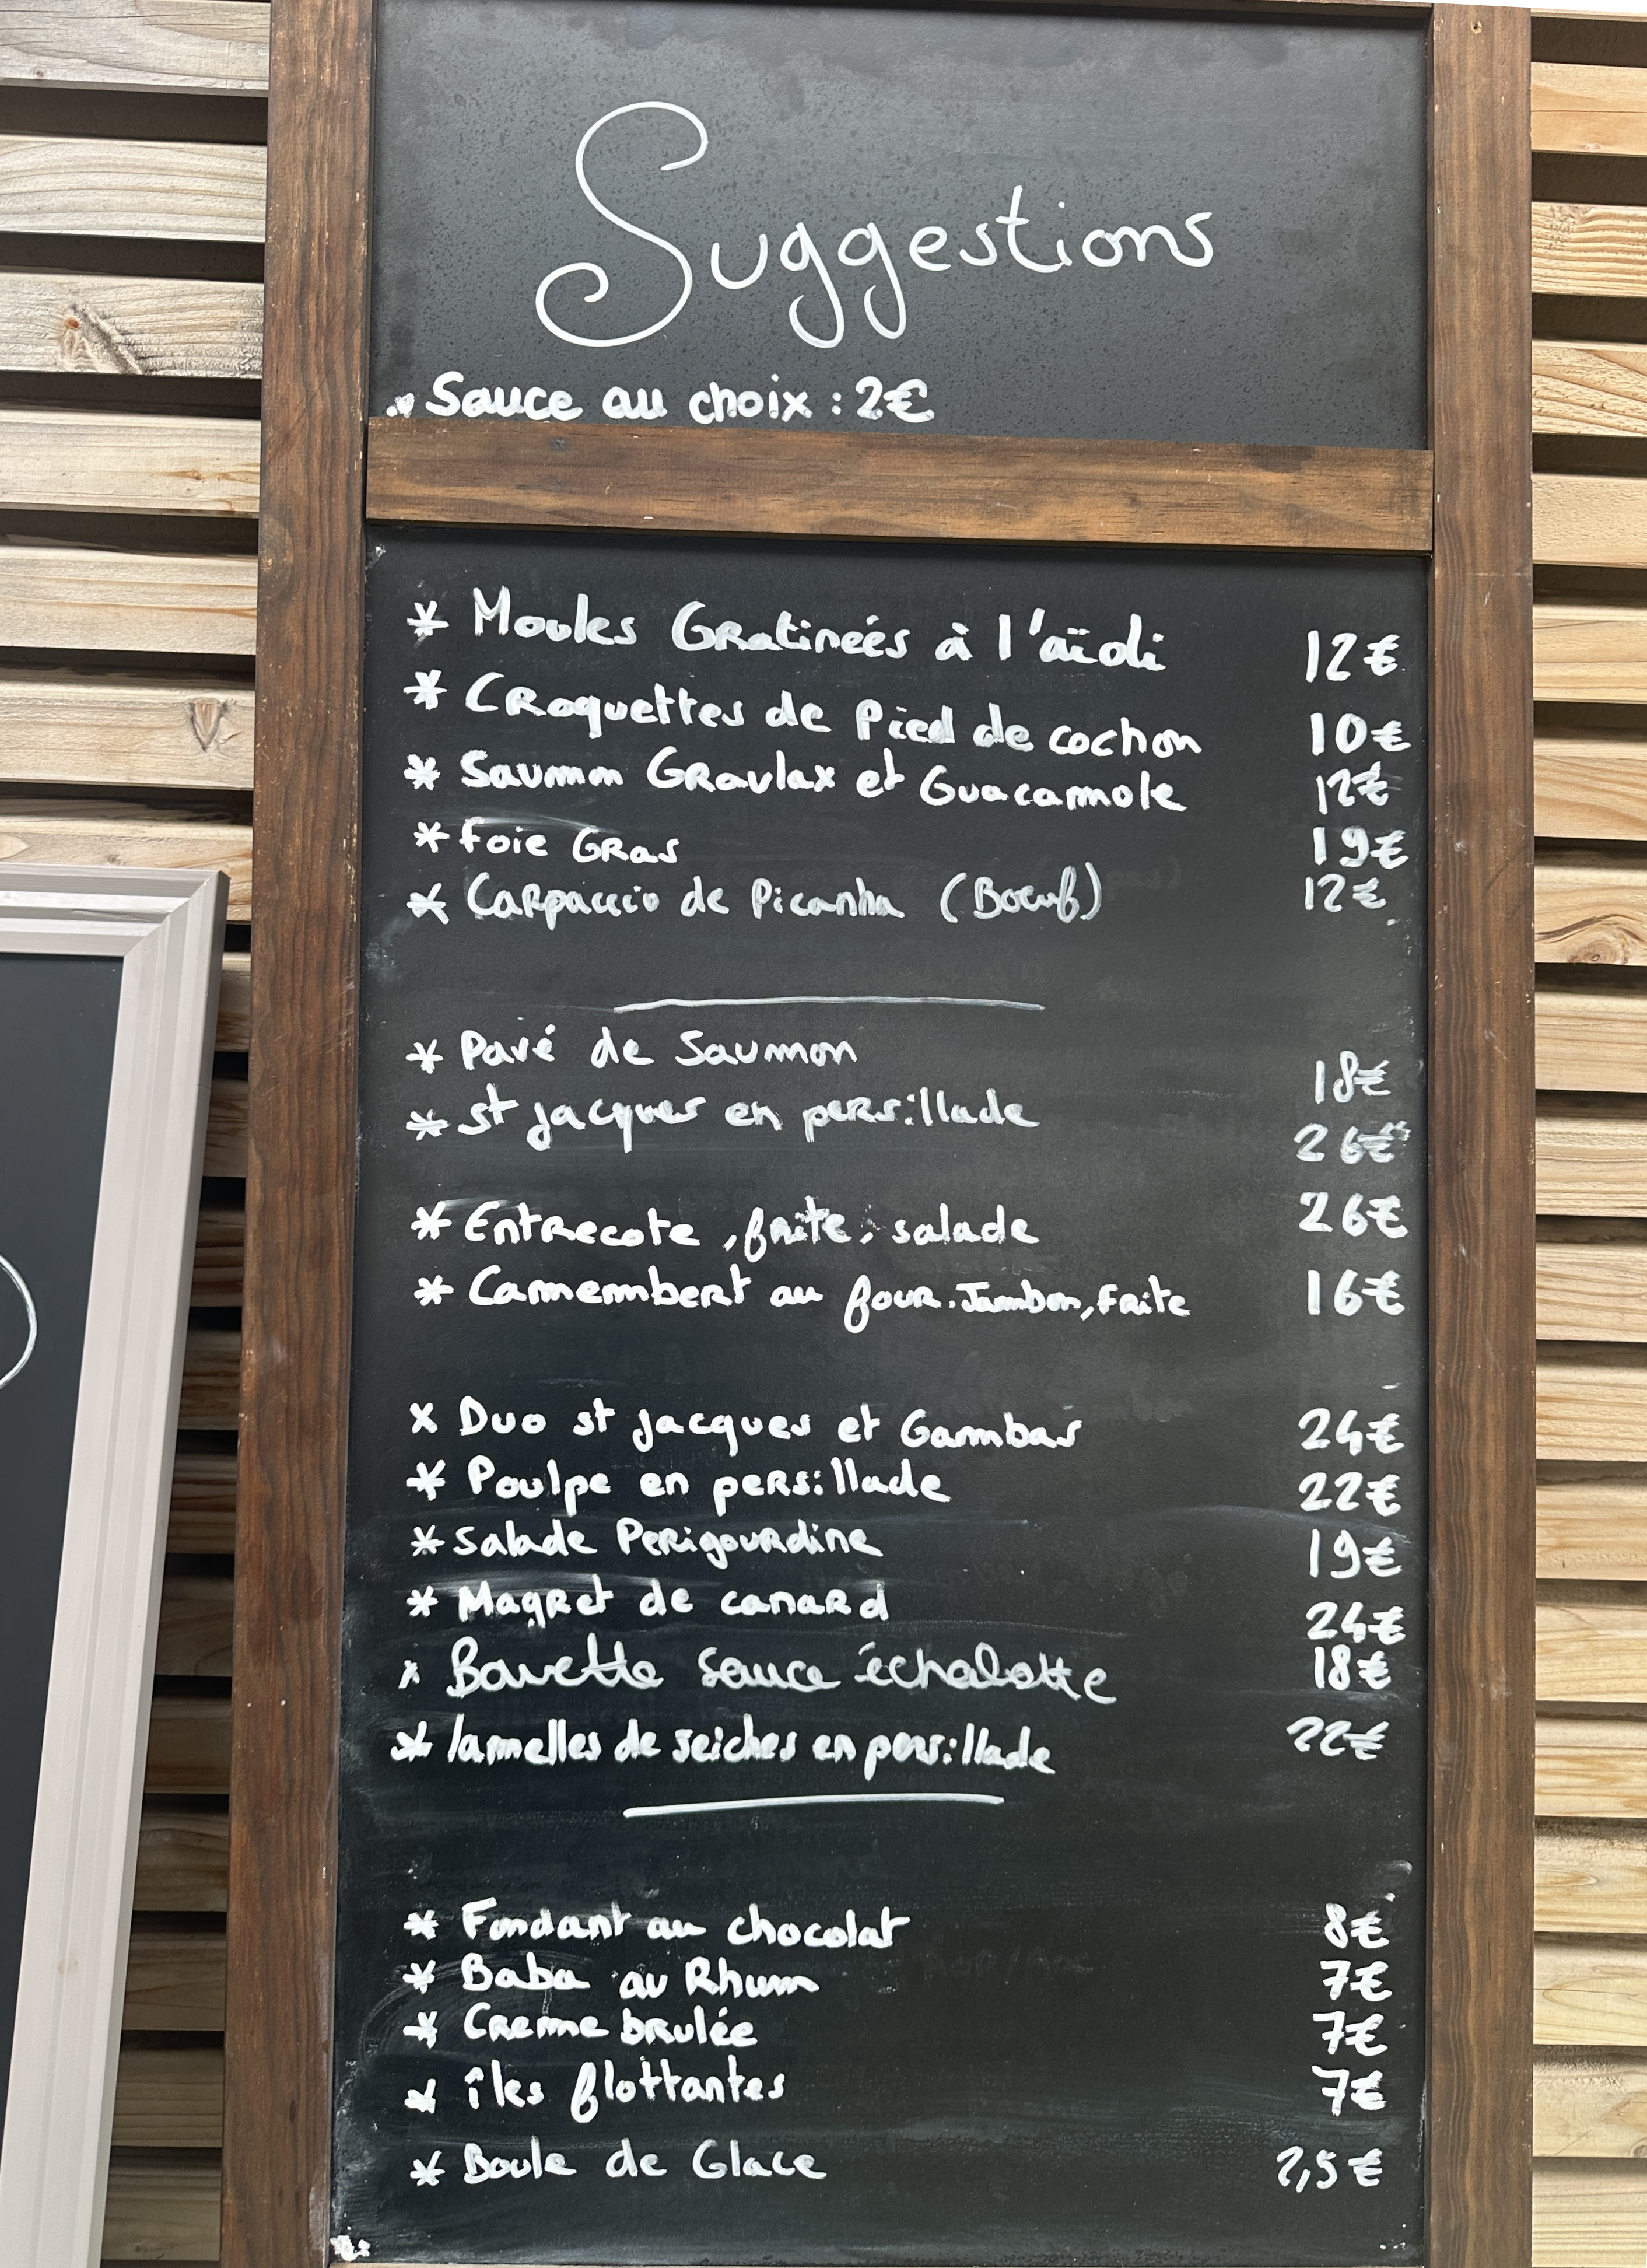 Suggestions
Sauce au choix : 2€
* Moules Gratineés à l'aïoli 12€
* Croquettes de Pied de cochon 10€
* Saumon Gravlax et Guacamole 12€
* Foie Gras 19€
* Carpaccio de Picanha (Boeuf) 12€
* Pavé de Saumon 18€
* St Jacques en persillade 26€
* Entrecote, frite, salade 26€
* Camembert au four. Jambon, frite 16€
x Duo st Jacques et Gambas 24€
* Poulpe en persillade 22€
* Salade Perigourdine 19€
* Magret de canard 24€
* Bavette sauce échalotte 18€
* lamelles de seiches en persillade 22€
* Fondant au chocolat 8€
* Baba au Rhum 7€
* Creme brulée 7€
* îles flottantes 7€
* Boule de Glace 2,5€